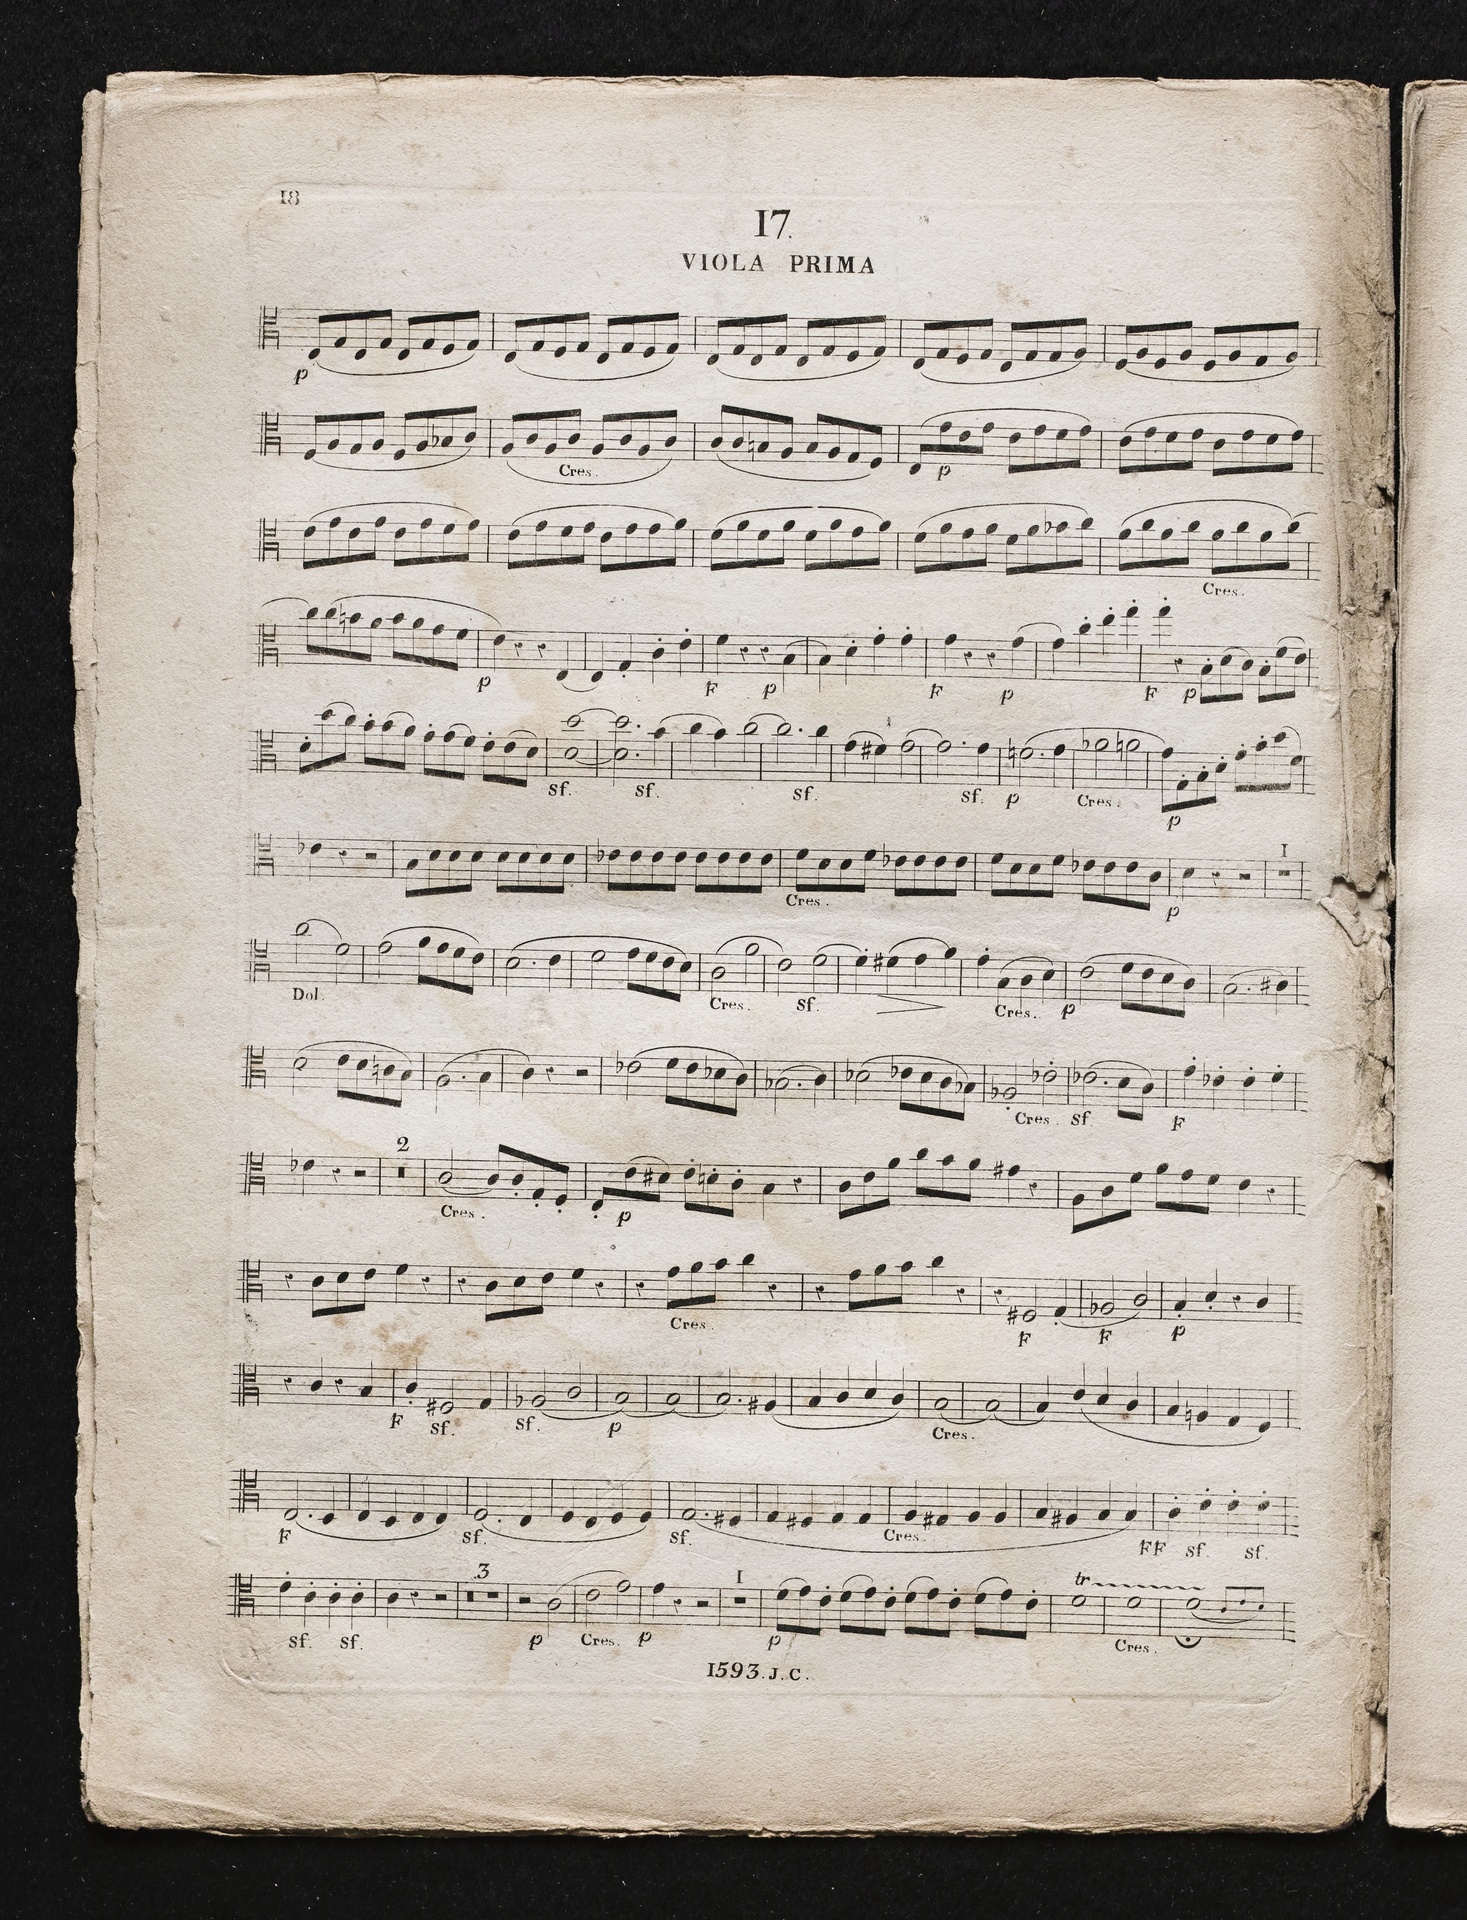 18
17.
VIOLA PRIMA
p
Cres. p
Cres.
p F p F p F p
Sf. Sf. Sf. Sf. p Cres. p
Cres. p I
Dol. Cres. Sf. Cres. p
Cres. Sf. F
2
Cres. p
Cres. F F p
F Sf. Sf. p Cres.
F Sf. Sf. Cres. FF Sf. Sf.
3 I tr
Sf. Sf. p Cres. p p Cres.
1593. J. C.